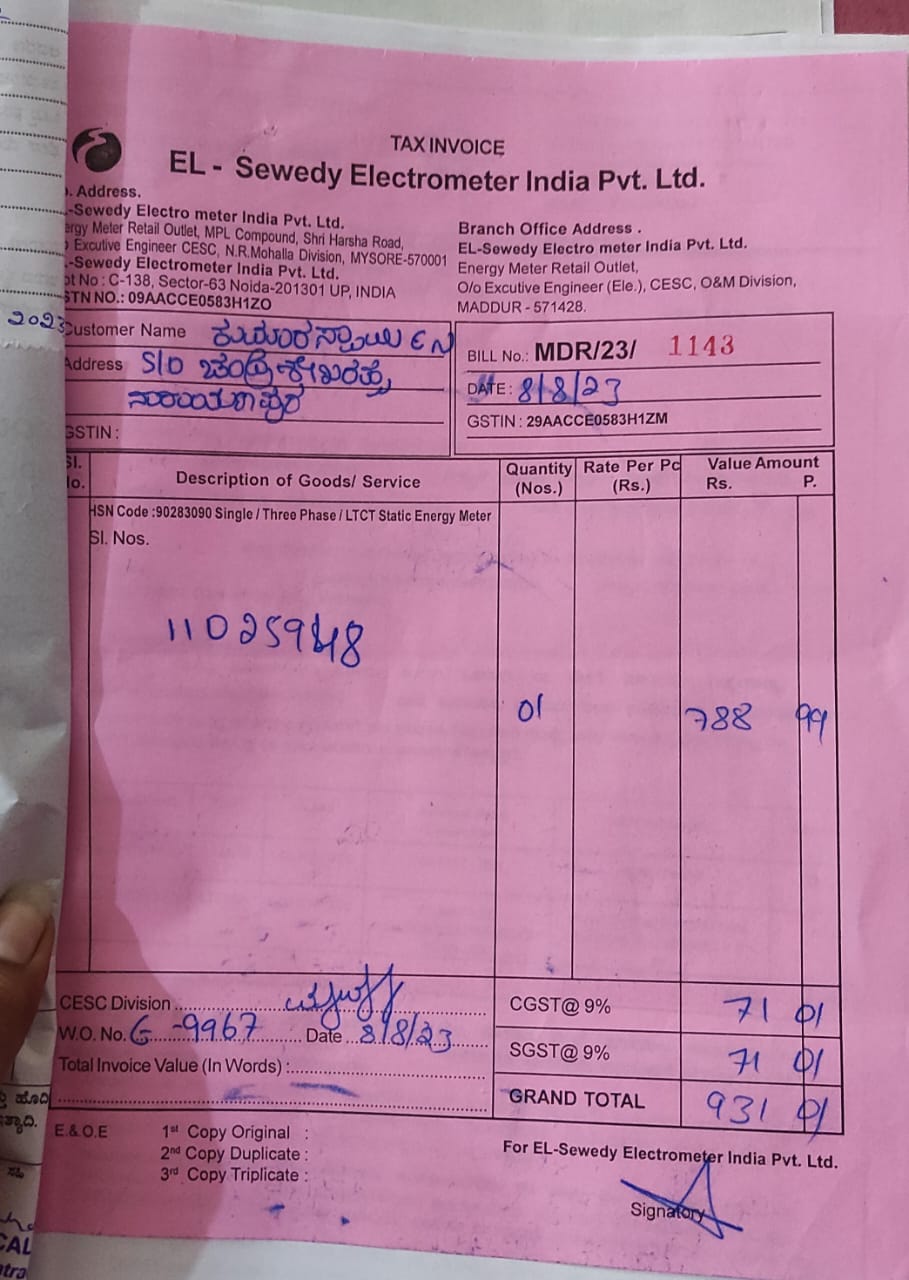 TAX INVOICE
EL - Sewedy Electrometer India Pvt. Ltd.
. Address.
-Sewedy Electro meter India Pvt. Ltd.
ergy Meter Retail Outlet, MPL Compound, Shri Harsha Road,
Excutive Engineer CESC, N.R.Mohalla Division, MYSORE-570001
-Sewedy Electrometer India Pvt. Ltd.
ot No : C-138, Sector-63 Noida-201301 UP, INDIA
STN NO.: 09AACCE0583H1ZO
Branch Office Address .
EL-Sewedy Electro meter India Pvt. Ltd.
Energy Meter Retail Outlet,
O/o Excutive Engineer (Ele.), CESC, O&M Division,
MADDUR - 571428.
2023
Customer Name ಕುಮಾರಸ್ವಾಮಿ
Address S/O ಚಂದ್ರಶೇಖರಪ್ಪ
ನಾರಾಯಣಪುರ
GSTIN :
BILL No.: MDR/23/ 1143
DATE : 8/8/23
GSTIN : 29AACCE0583H1ZM
Sl. No. Description of Goods/ Service Quantity (Nos.) Rate Per Pc (Rs.) Value Amount Rs. P.
HSN Code :90283090 Single / Three Phase / LTCT Static Energy Meter
Sl. Nos.
01 788 99
CESC Division
W.O. No. G-9967 Date 8/8/23
Total Invoice Value (In Words) :
CGST@ 9% 71 01
SGST@ 9% 71 01
GRAND TOTAL 931 01
E.& O.E
1st Copy Original :
2nd Copy Duplicate :
3rd Copy Triplicate :
For EL-Sewedy Electrometer India Pvt. Ltd.
Signatory